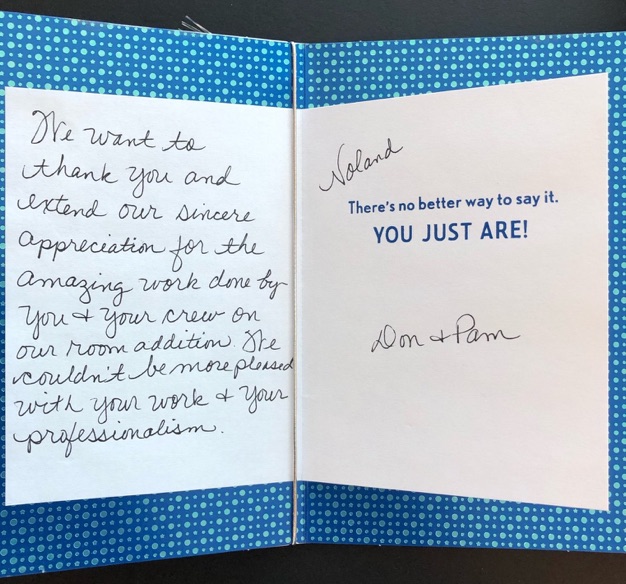 We want to
thank you and
extend our sincere
appreciation for the
amazing work done by
you & your crew on
our room addition. We
couldn't be more pleased
with your work & your
professionalism.
Noland
There's no better way to say it.
YOU JUST ARE!
Don & Pam